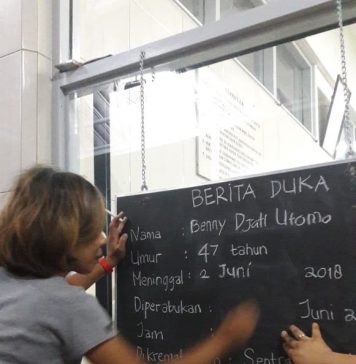 BERITA DUKA
Nama : Benny Djati Utomo
Umur : 47 tahun
Meninggal : 2 Juni 2018
Diperabukan : Juni
Jam :
: Sentra